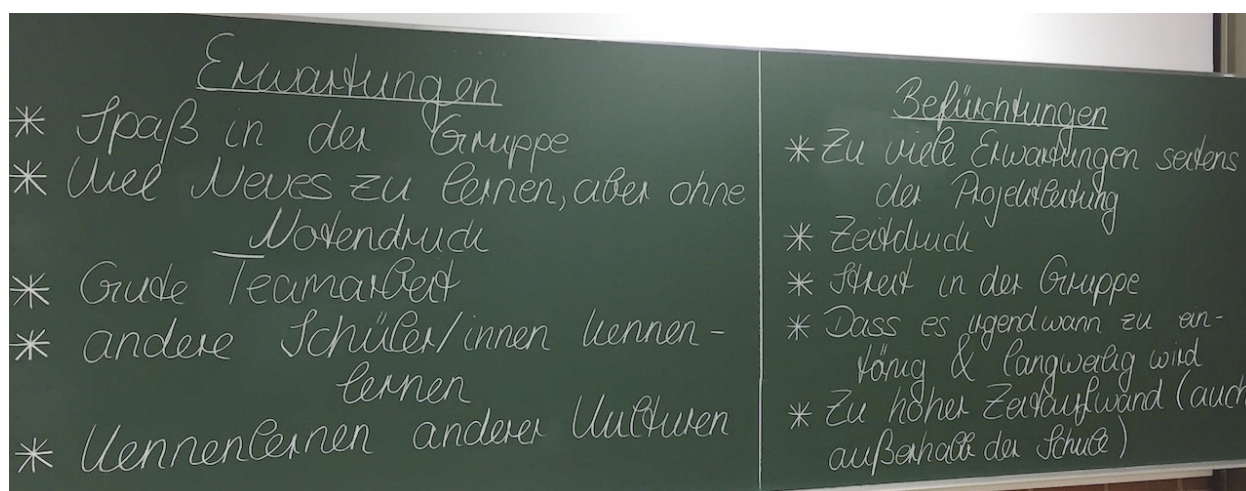 Erwartungen
* Spaß in der Gruppe
* Viel Neues zu lernen, aber ohne
Notendruck
* Gute Teamarbeit
* andere Schüler/innen kennen-
lernen
* Kennenlernen anderer Kulturen
Befürchtungen
* Zu viele Erwartungen seitens
der Projektleitung
* Zeitdruck
* Streit in der Gruppe
* Dass es irgendwann zu ein-
tönig & langweilig wird
* Zu hoher Zeitaufwand (auch
außerhalb der Schule)